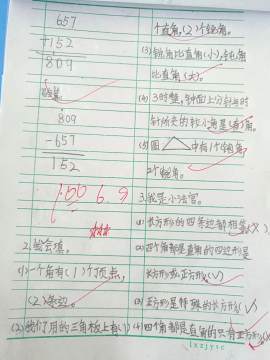 657
+152
809
验算
809
-657
152
2.我会填。
(1)一个角有(1)个顶点,
(2)条边。
(2)我们用的三角板上有(1)
个直角,(2)个锐角。
(3)锐角比直角(小),钝角
比直角(大)。
(4)3时整,钟面上分针与时
针所夹的较小角是(直)角。
(5)图 中有1个钝角,
2个锐角。
3.我是小法官。
(1)长方形的四条边都相等(X)
(2)四个角都是直角的四边形是
长方形或正方形。(√)
(3)正方形是特殊的长方形(√)
(4)四个角都是直角的只有正方形。(X)